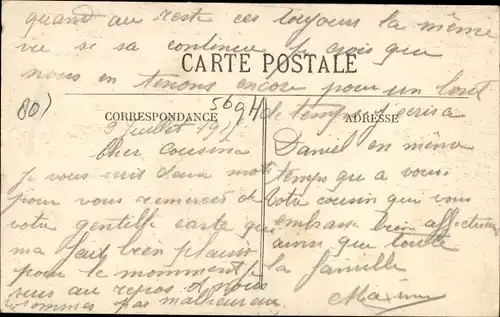 9 Juillet 19
Cher cousin
je vous écris deux mots
pour vous remercier de
votre gentille carte qui
ma fait bien plaisir
pour le momment je
suis au repos et nous
sommes pas malheureux
quand au reste ces toujours la même
vie si sa continue je crois que
nous en tenons encore pour un bout
CARTE POSTALE
80) 5694
de temps j'écris a
CORRESPONDANCE
ADRESSE
Daniel en même
temps qu a vous
Votre cousin qui vous
embrasse bien affectueu
ainsi que toute
la famille